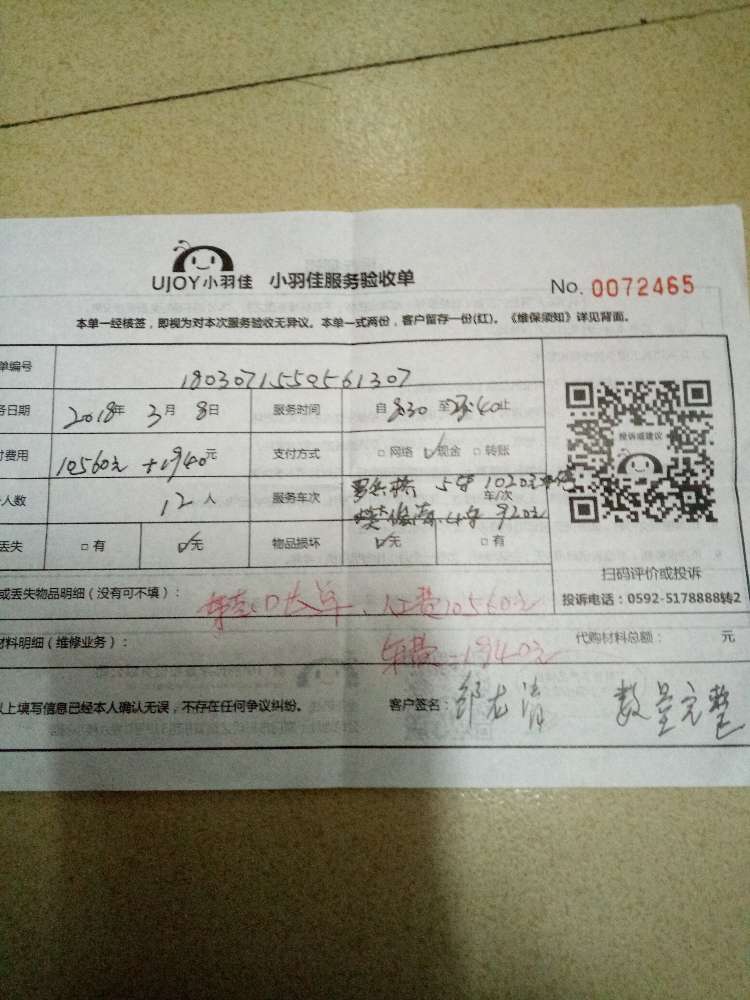 UJOY小羽佳 小羽佳服务验收单 No. 0072465
本单一经核签，即视为对本次服务验收无异议。本单一式两份，客户留存一份(红)。《维保须知》详见背面。
单编号 1803071550561307
务日期 2018年 3月 8日 服务时间 自 8:30 至 23:40止
付费用 10560元 +1940元 支付方式 □网络 ☑现金 □转账
人数 12人 服务车次 5 1020元 车/次
920元
丢失 □有 ☑无 物品损坏 ☑无 □有
投诉或建议
扫码评价或投诉
投诉电话：0592-5178888转2
或丢失物品明细（没有可不填）： 人工费10560元
材料明细（维修业务）： 车费：1940元 代购材料总额： 元
以上填写信息已经本人确认无误，不存在任何争议纠纷。 客户签名：邹龙清 数量完整